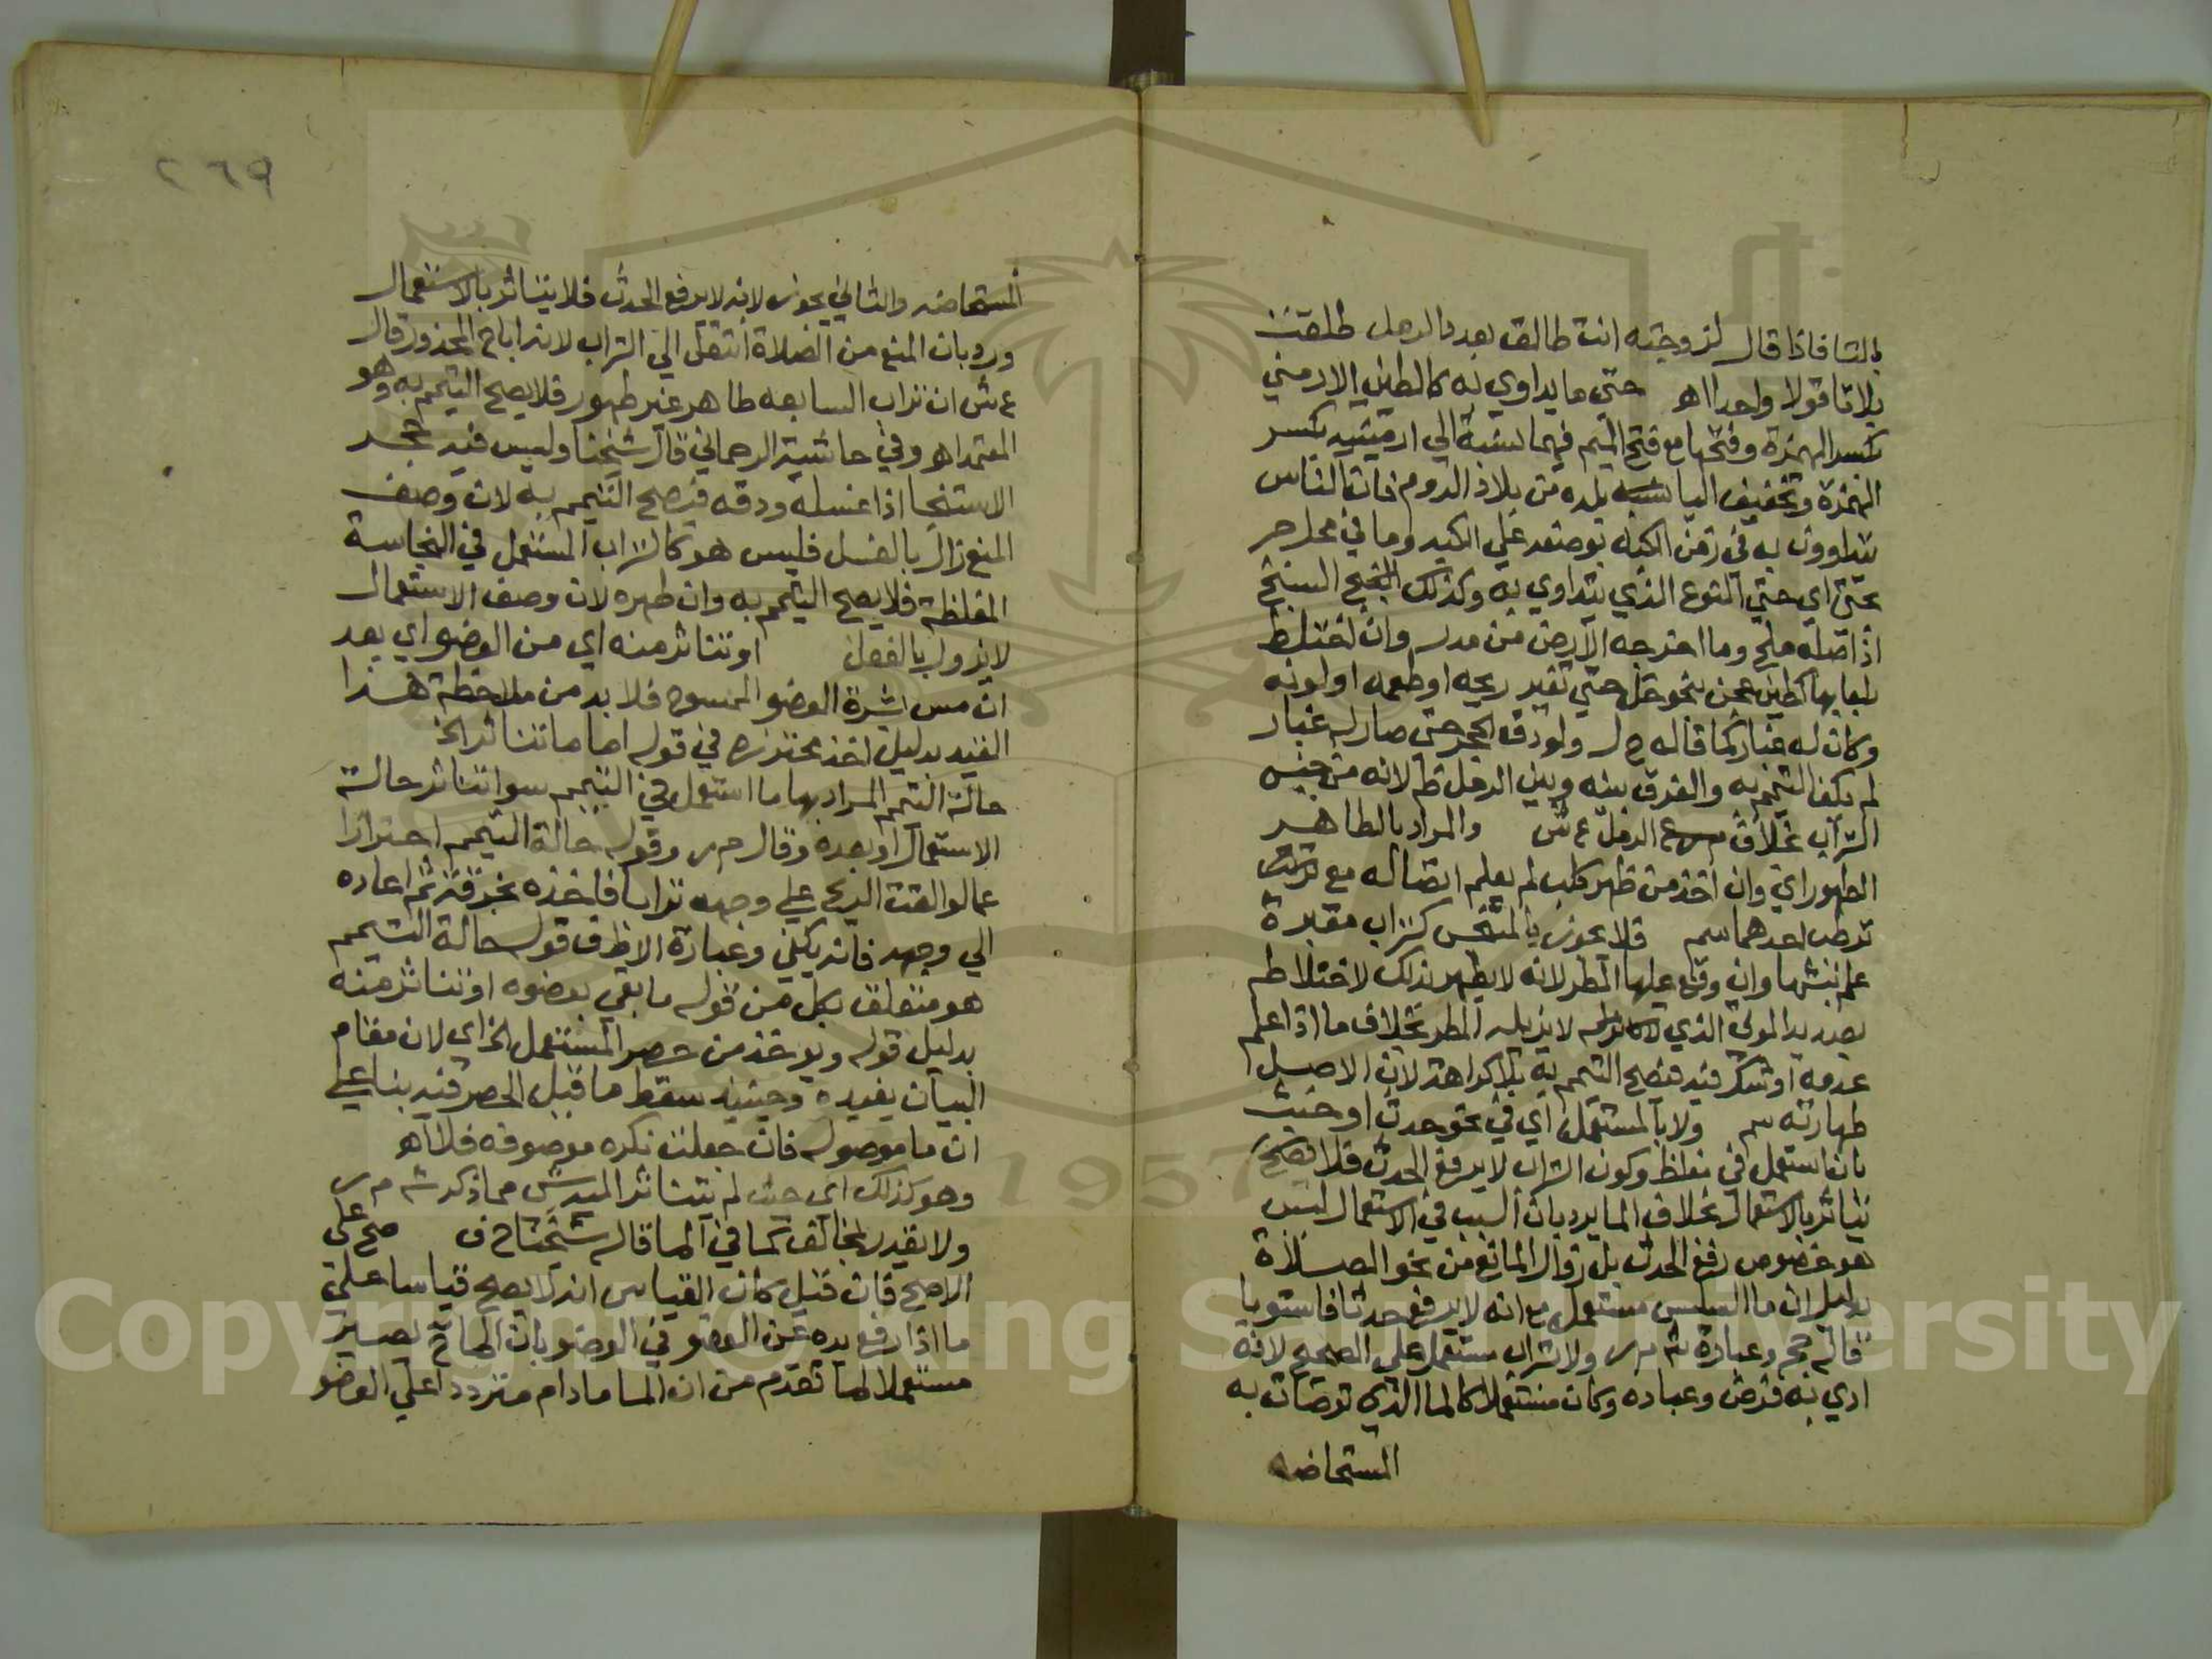 بالتا فاذا قال لزوجته انت طالق بعدد الرمل طلقت
ثلاثا قولا واحدا اهـ حتي ما يداوي به كالطين الارمني
بكسر الهمزة وفتحها مع فتح الميم فيهما نسبة الي ارمينيه بكسر
الهمزة وتخفيف اليا بلده من بلاد الروم فان الناس
يتداوون به في زمن بوضعه علي وما في محل جر
بحتي اي حتي النوع الذي يتداوي به وكذلك السبخ
اذا اصله ملح وما اخرجه الارض من مدر وان اختلط
بلعابها كطين عجن بنحو خل حتي تغير ريحه او طعمه او لونه
وكان له غبار كما قاله ح ل ولو دق الحجر حتي صار له غبار
لم يكف التيمم به والفرق بينه وبين الرمل لانه من جنس
التراب بخلاف الرمل ع ش والمراد بالطاهر
الطهور اي وان اخذ من ظهر كلب لم يعلم اتصاله مع
ترطب احدهما سم فلا يجوز بالمتنجس كتراب مقبرة
علم نبشها وان وقع عليها المطر لانه لا يطهر بذلك لاختلاطه
بصديد الموتي الذي لا يزيله المطر بخلاف ما اذا علم
عدمه او شك فيه فيصح التيمم به بلا كراهة لان الاصل
طهارته سم ولا بالمستعمل اي في نحو حدث او خبث
بان استعمل في مغلظ وكون التراب لا يرفع الحدث فلا يصح
يتاثر بالاستعمال بخلاف الما يرد بان السبب في الاستعمال ليس
هو خصوص رفع الحدث بل زوال المانع من نحو الصلاة
بدليل ان ما السلس مستعمل مع انه لا يرفع حدثا فاستويا
قاله حج وعبارة ش م ر ولا تراب مستعمل علي الصحيح لانه
ادي به فرض وعباده وكان مستعملا كالما الذي توضات به
المستحاضه
٢٦٩
المستحاضه والثاني يجوز لانه لا يرفع الحدث فلا يتاثر بالاستعمال
ورد بان المنع من الصلاة انتقل الي التراب لانه اباح المحذور قال
ع ش ان تراب السابعه طاهر غير طهور فلا يصح التيمم به وهو
المعتمد اهـ وفي حاشية الرحماني قال شيخنا وليس فيه حجر
الاستنجا اذا غسله ودقه فيصح التيمم به لان وصف
المنع زال بالغسل فليس هو كالتراب المستعمل في النجاسة
المغلظة فلا يصح التيمم به وان طهره لان وصف الاستعمال
لا يزول بالغسل او تناثر منه اي من العضو اي بعد
ان مس بشرة العضو الممسوح فلا بد من ملاحظة هذا
القيد بدليل اخذ محترزه في قوله اما ما تناثر الخ
حالة التيمم المراد بها ما استعمل في التيمم سوا تناثر حالة
الاستعمال او بعده وقال م ر وقوله حالة التيمم احترازا
عما لو القت الريح علي وجهه ترابا فاخذه بخرقة ثم اعاده
الي وجهه فانه يكفي وعبارة الاطف قوله حالة التيمم
هو متعلق بكل من قوله ما بقي بعضوه او تناثر منه
بدليل قوله ويوخذ من حصر المستعمل الخ اي لان مقام
البيان يفيده وحينيذ سقط ما قيل الحصر فيه بنا علي
ان ما موصوله فان جعلت نكره موصوفه فلا اهـ
وهو كذلك اي حيث لم يتناثر اليه شي مما ذكر ش م ر
ولا يقدر لمخالف كما في الما قاله شيخنا ح ف صح علي
الاصح فان قيل كان القياس انه لا يصح قياسا علي
ما اذا رفع يده عن العضو في الوضو بان الما يصير
مستعملا لما تقدم من ان الما ما دام مترددا علي العضو